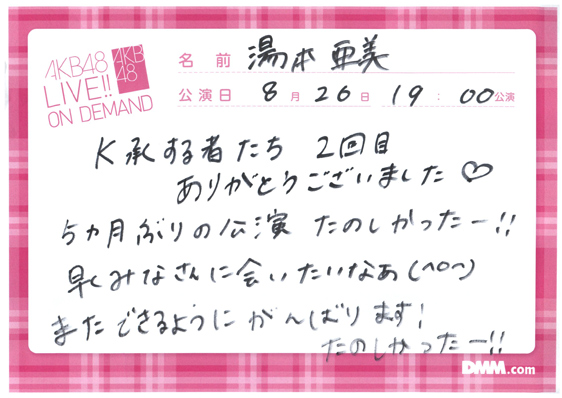 AKB48
LIVE!!
ON DEMAND
AKB
48
名前 湯本亜美
公演日 8月26日 19:00公演
K承する者たち 2回目
ありがとうございました♡
5カ月ぶりの公演 たのしかったー!!
早くみなさんに会いたいなあ(^o^)
またできるようにがんばります!
たのしかったー!!
DMM.com